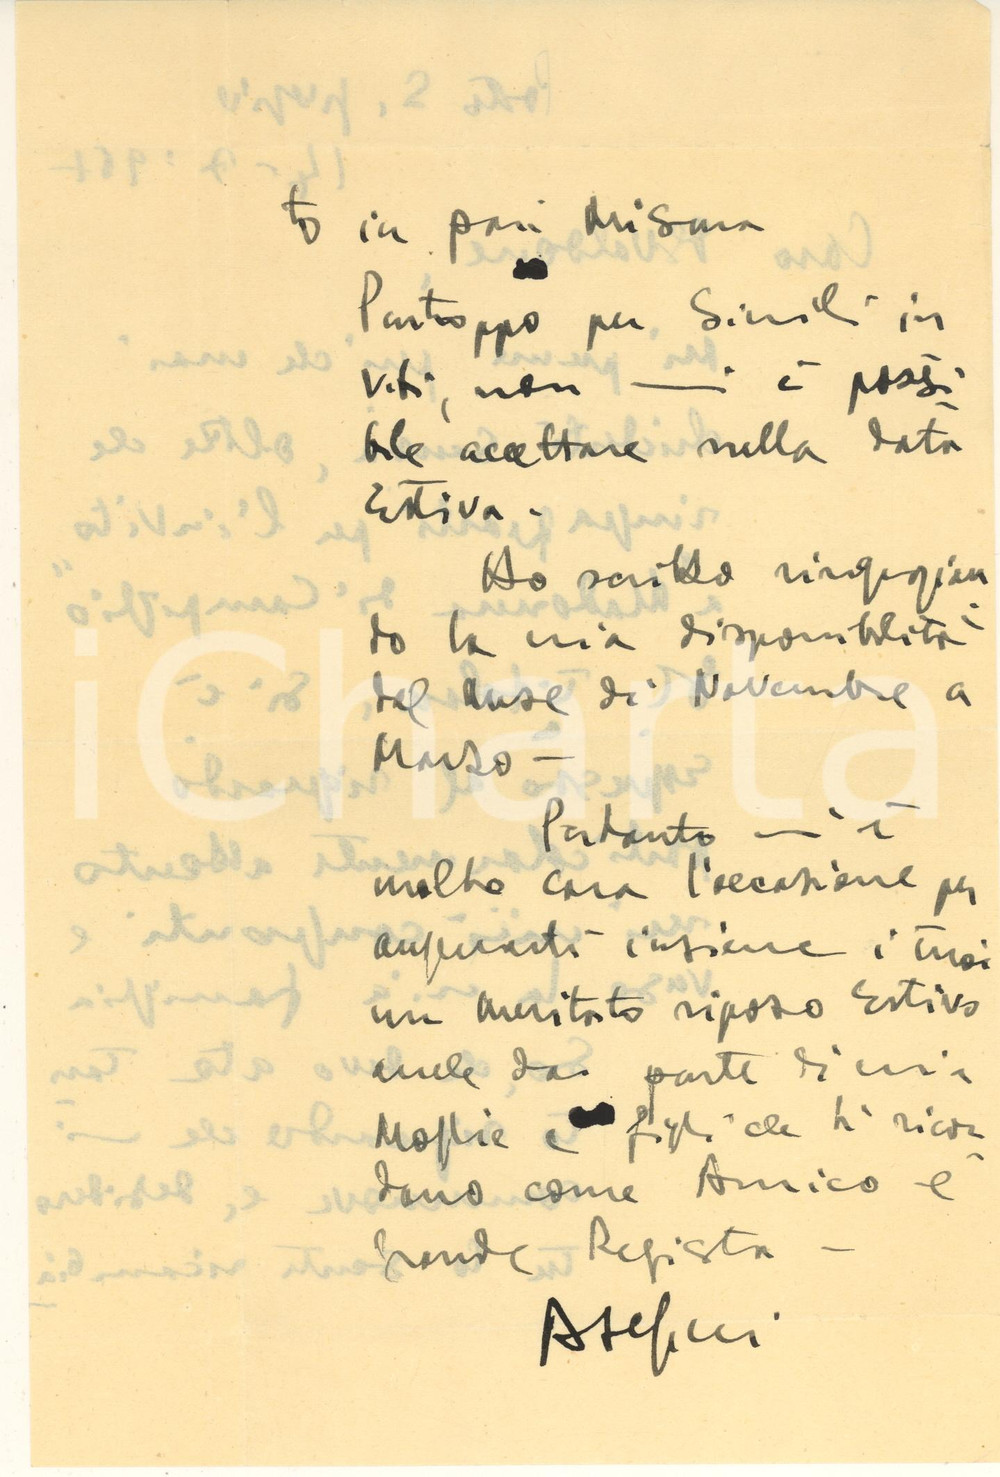 to in pari Misura
Purtroppo per Simili in
viti, non mi è possi
bile accettare nella data
Estiva -
Ho scritto ringrazian
do la mia disponibilità
dal Mese di Novembre a
Marzo -
Pertanto m'è
molto cara l'occasione per
augurarti insieme i tuoi
un Meritato riposo Estivo
anche da parte di mia
Moglie e figli che ti ricor
dano come Amico e
grande Regista -
iCharta